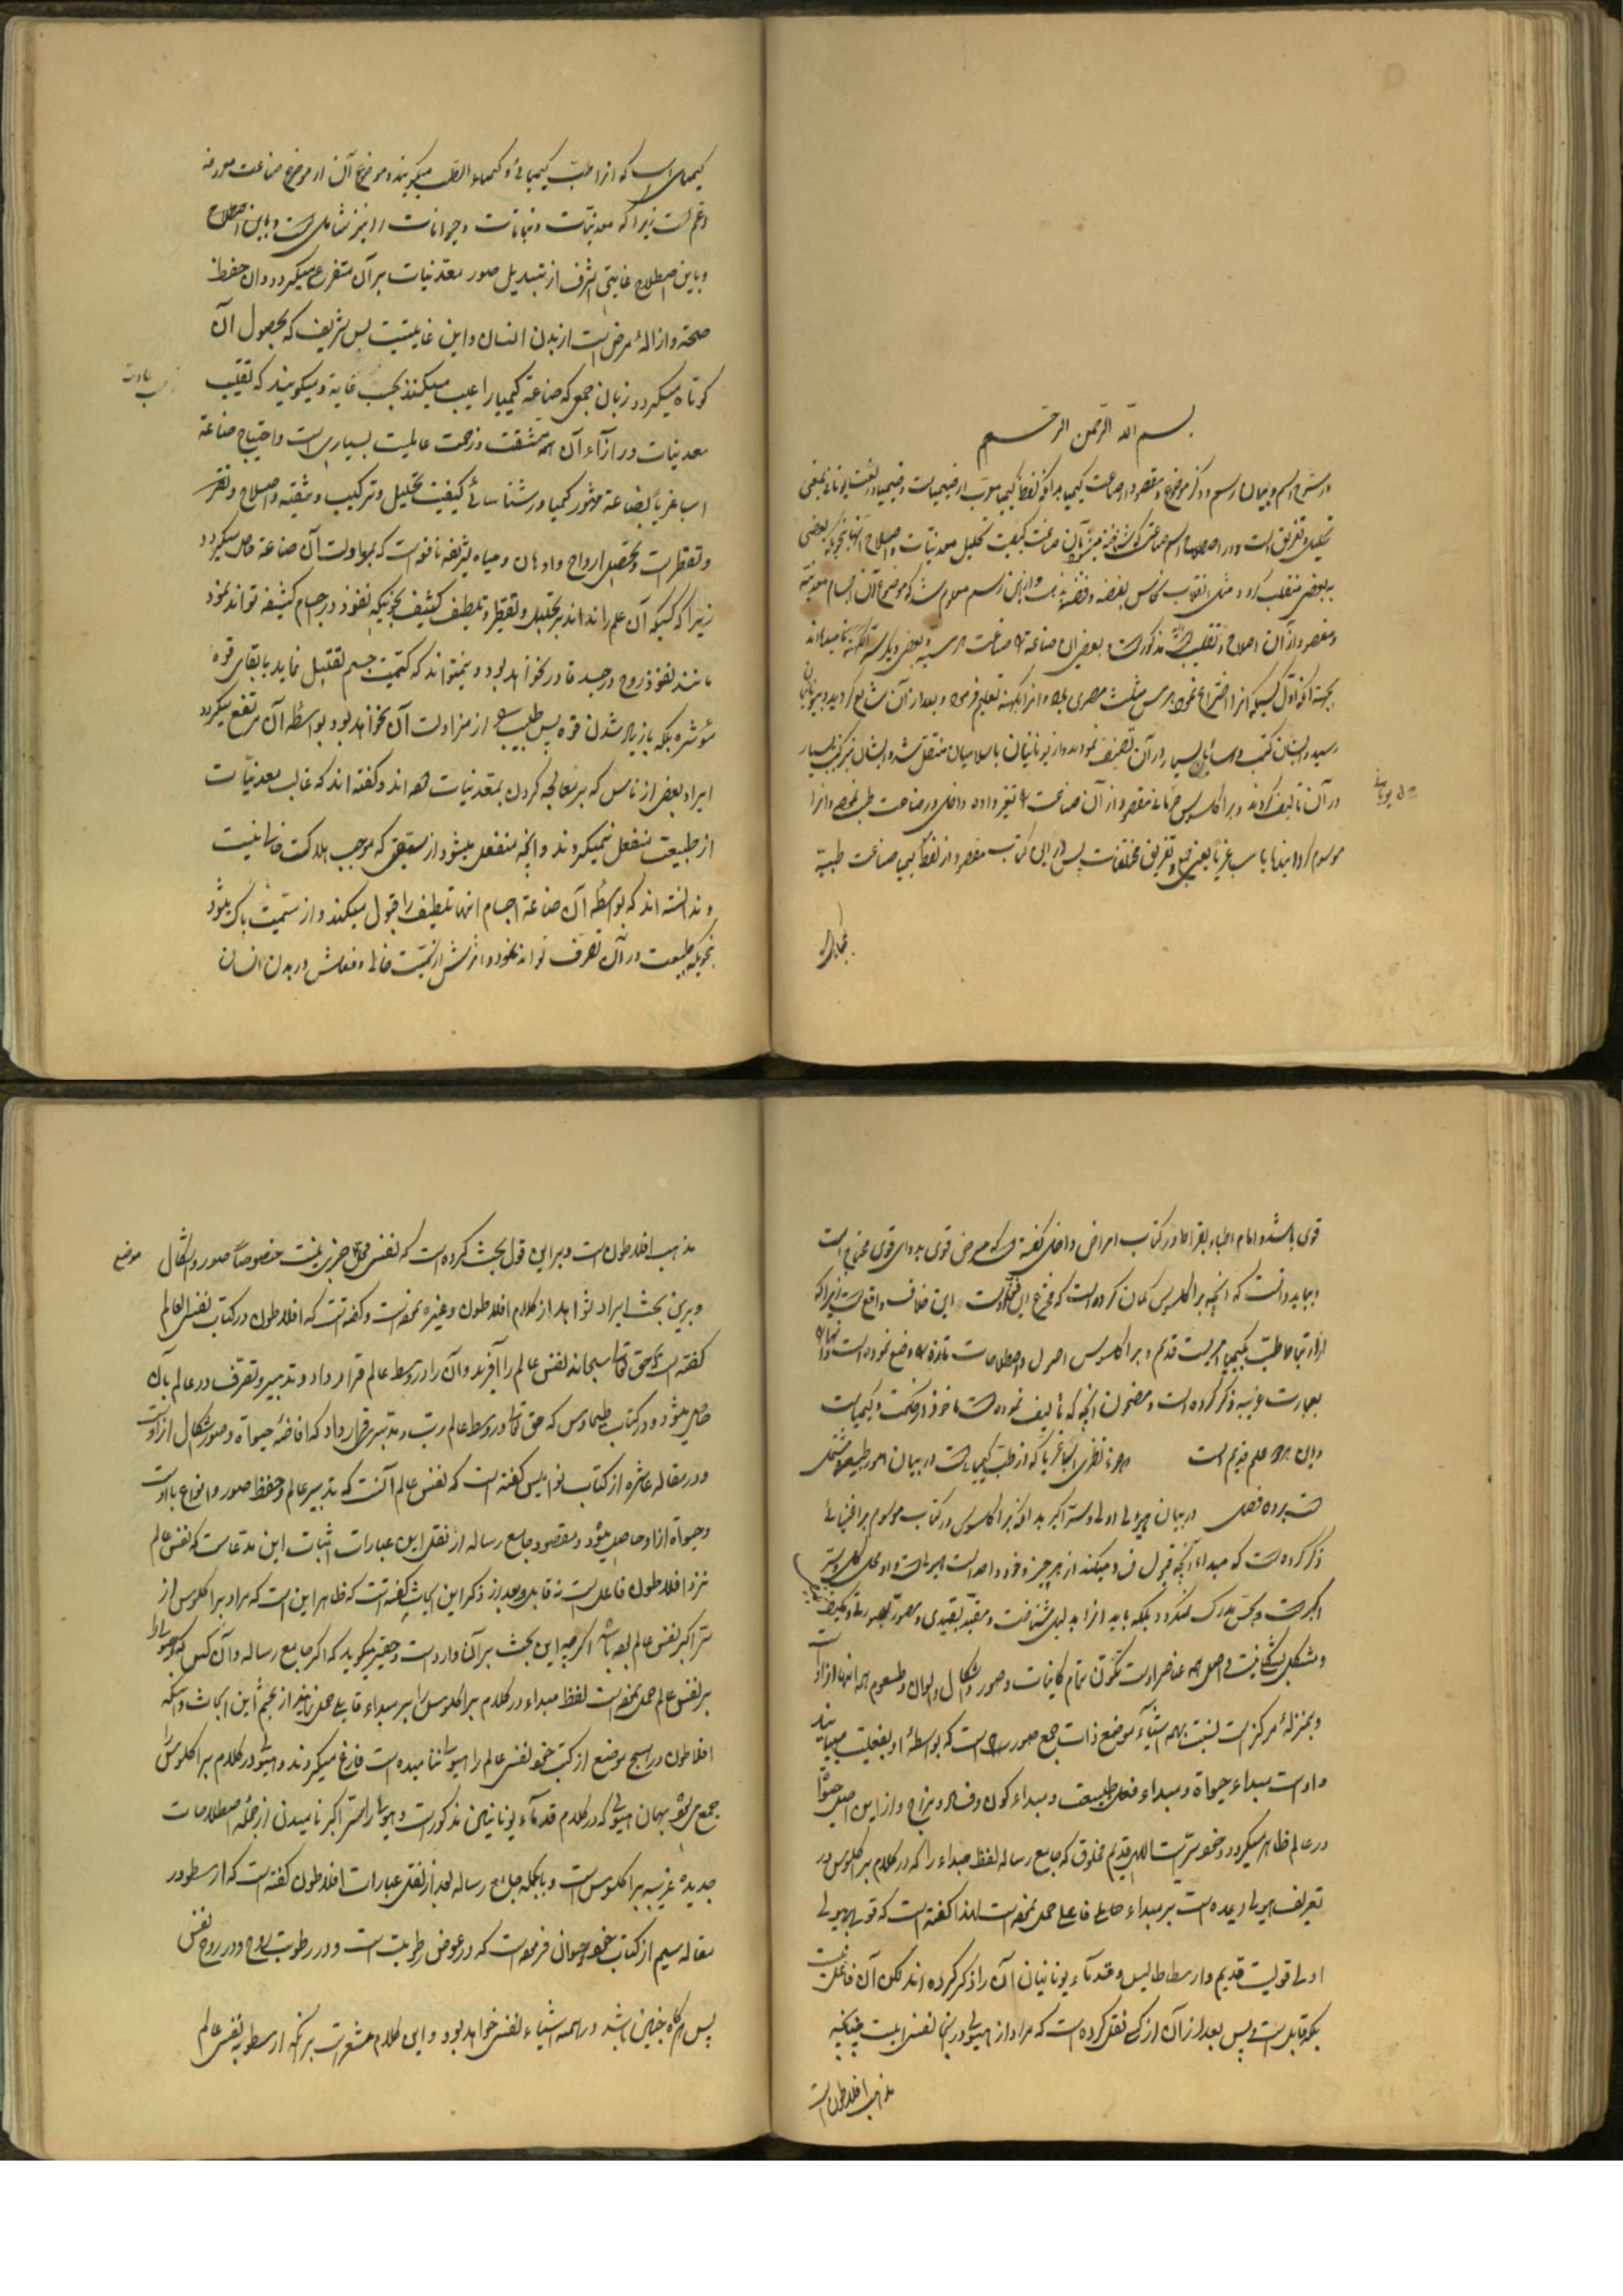 بسم الله الرحمن الرحیم
در شرح اسم و بیان رسم و ذکر موضوع و مقصود از صناعت کیمیا بدانکه لفظ کیمیا معرب از خیمیاست و خیمیا در لغت یونانی بمعنی
تحلیل و تفریق است و در اصطلاح اسم صناعتی که شناخته میشود بآن صناعت کیفیت تحلیل معدنیات و اصلاح آنها بنحویکه بعضی
ببعضی منقلب گردد مثل انقلاب نحاس بفضه و فضه بذهب و از این رسم معلوم شد که موضوع آن اجسام معدنیه
و مقصود از آن اصلاح و تقلیب مذکور است و بعضی این صناعة را صناعت هرمسیه و بعضی دیگر نامیده‌اند
بجهة آنکه اول کسیکه آنرا اختراع نمود هرمس مثلث مصری بود و آنرا بکهنه تعلیم فرمود و بعد از آن شایع گردید و بیونانیان
رسید و ایشان کتب و رسائل بسیار در آن تصنیف نمودند و از یونانیان باسلامیان منتقل شد و ایشان نیز کتب بسیار
در آن تألیف کردند و براکلسوس جرمانی مقصود از آن صناعت را تغیر داده داخل در صناعت طب نمود و آنرا
موسوم گردانید باسباغریا یعنی جمع و تفریق مختلفات پس در این کتاب مقصود از لفظ کیمیا صناعت طبیه
کیمیائی است که آنرا طب کیمیائی و کیمیاء الطب میگویند و موضوع آن از موضوع صناعت معروفه
اعم است زیرا که معدنیات و نباتات و حیوانات را نیز شامل است و باین اصطلاح
و باین اصطلاح غایتی اشرف از تبدیل صور معدنیات بر آن متفرع میگردد و آن حفظ
صحة و ازالهٔ مرض است از بدن انسان و این غایتیست بس شریف که بحصول آن
کوتاه میگردد زبان جمعی که صناعة کیمیا را عیب میکنند بحسب غایة و میگویند که تقلیب
معدنیات در ازاء آن همه مشقت و زحمت عاملیت بسیاری است و احتیاج صناعة
اسباغریا بصناعة مشهور کیمیا در شناسائی کیفیت تحلیل و ترکیب و تنقیه و اصلاح و تقریر
و تقطیر است و تحصیل ارواح و ادهان و میاه شریفه نافعه است که بمزاولت آن صناعة حاصل میگردد
زیرا که کسیکه آن علم را نداند بر تحلیل و تقطیر و تلطیف کثیف بحیثیکه نفوذ در اجسام کثیفه تواند نمود
مانند نفوذ روح در جسد قادر نخواهد بود و نمیتواند که کمیت جسم تقلیل نماید بابقای قوة
مؤثره بلکه با زیاد شدن قوه پس طبیب از مزاولت آن نخواهد بود و بواسطهٔ آن مرتفع میگردد
ایراد بعضی از ناس که بر معالجه کردن بمعدنیات و گفته‌اند که غالب معدنیات
از طبیعت منفعل نمیگردند و آنچه منفعل میشود از سمیتی که موجب هلاکت خالی نیست
و ندانسته‌اند که بواسطهٔ آن صناعة اجسام آنها تلطیف را قبول میکند و از سمیت پاک میشود
بنحویکه طبیعت در آن تصرف تواند نمود و اثرش از سمیت خالی و فعلش در بدن انسان
قوی باشد و امام اطباء بقراط در کتاب امراض داخلی گفته است که مرض قوی بدوای قوی محتاج است
و بباید دانست که آنچه براکلسوس گمان کرده است که مخترع این اوست این خلاف واقع است زیرا که
ارتباط طب بکیمیا امریست قدیم و براکلسوس اصول و اصطلاحات تازه وضع نموده است و آنها را
بعبارت غریبه ذکر کرده است و مضمون آنچه که تألیف نموده است ماخوذ از حکمت و کیمیاست
و این هر دو علم قدیم است و جزء نظری اسباغریا که از طب کیمیائیست در بیان امور طبیعیه مشتمل
است بر ده فصل در بیان هیولی اولی و ستر اکبر بدانکه براکلسوس در کتاب موسوم بر
ذکر کرده است که مبداء آنچه قبول فساد میکند از هر چیز و خود واحد است
اکبر است و بحس مدرک نمیگردد بلکه باید آنرا بدلیل شناخت و مقید بقیدی و مصور بصورتی و مکیف
و مشکل بشکلی نیست و اصل همه عناصر اوست تکون تمام کاینات و صور و اشکال و الوان و طعوم همه اینها از او
و بمنزلهٔ مرکز است نسبت بهمه اشیاء موضع ذات جمیع صور است که بواسطهٔ او بفعلیت میآیند
و اوست مبداء حیوة و مبداء فعل طبیعت و مبداء کون و فساد و مزاج و از این اصل حیوة
در عالم ظاهر میگردد و خود سریست الهی قدیم مخلوق که جامع رساله لفظ مبداء را که در کلام براکلسوس در
تعریف هیولی وارد شده است بر مبداء فاعلی حمل نموده است لهذا گفته است که قول بهیولی
اولی قولیست قدیم و ارسطاطالیس و قدماء یونانیان آن را ذکر کرده‌اند لکن آن فاعل نیست
بلکه قابل است پس بعد از آن از کسی نقل کرده است که مراد از هیولی در اینجا نفس است چنانچه
مذهب افلاطون است
مذهب افلاطون است و بر این قول بحث کرده است که نفس محل چیزی نیست خصوصاً صور و اشکال
و برین بحث ایراد شواهد از کلام افلاطون و غیره نموده است و گفته است که افلاطون در کتاب نفس العالم
گفته است که حق تعالی سبحانه نفس عالم را آفرید و آن را در وسط عالم قرار داد و تدبیر و تصرف در عالم بآن
حاصل میشود و در کتاب طیماوس که حق تعالی در وسط عالم رب و مدبری قرار داد که افاضهٔ حیوة و صور و اشکال از اوست
و در مقاله عاشره از کتاب نوامیس گفته است که نفس عالم آنست که تدبیر عالم و حفظ صور و انواع با اوست
و حیوة از او حاصل میشود و مقصود جامع رساله از نقل این عبارات اثبات این مدعاست که نفس عالم
نزد افلاطون فاعل است نه قابل و بعد از ذکر این ابحاث گفته است که ظاهر این است که مراد براکلسوس از
ستر اکبر نفس عالم بوده باشد اگر چه این بحث بر آن وارد است و حقیر میگوید که اگر جامع رساله و آن کس که هیولی را
بر نفس عالم حمل نموده است لفظ مبداء در کلام براکلسوس را بر مبداء قابلی حمل نمایند از تجشم این ابحاث و اینکه
افلاطون در هیچ موضع از کتب خود نفس عالم را هیولی ننامیده است فارغ میگردند و هیولی در کلام براکلسوس
جمع میشود بهمان هیولی که در کلام قدماء یونانیین مذکور است و هیولی را ستر اکبر نامیدن از جمله اصطلاحات
جدیده غریبه براکلسوس است و بالجمله جامع رساله بعد از نقل عبارات افلاطون گفته است که ارسطو در
مقاله سیم از کتاب حیوان فرموده است که در عوض رطوبت است و در رطوبت روح و در روح نفس
پس هرگاه چنین باشد در همه اشیاء نفس خواهد بود و این کلام مشعر است بر آنکه ارسطو بنفس عالم